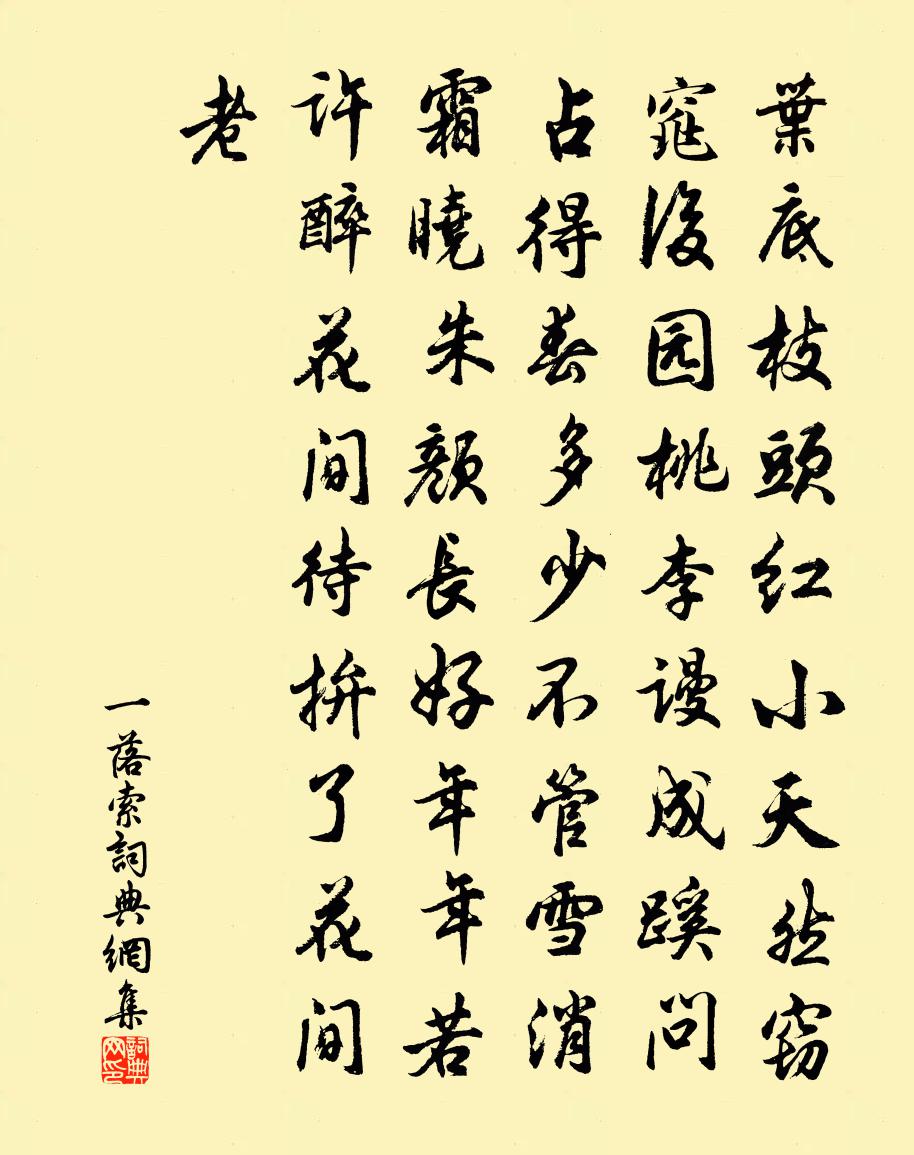 葉底枝頭紅小天然窈
窕後园桃李谩成蹊問
占得春多少不管雪消
霜曉朱顔長好年年若
許醉花间待拚了花间
老
一落索詞典網集
詞典网印